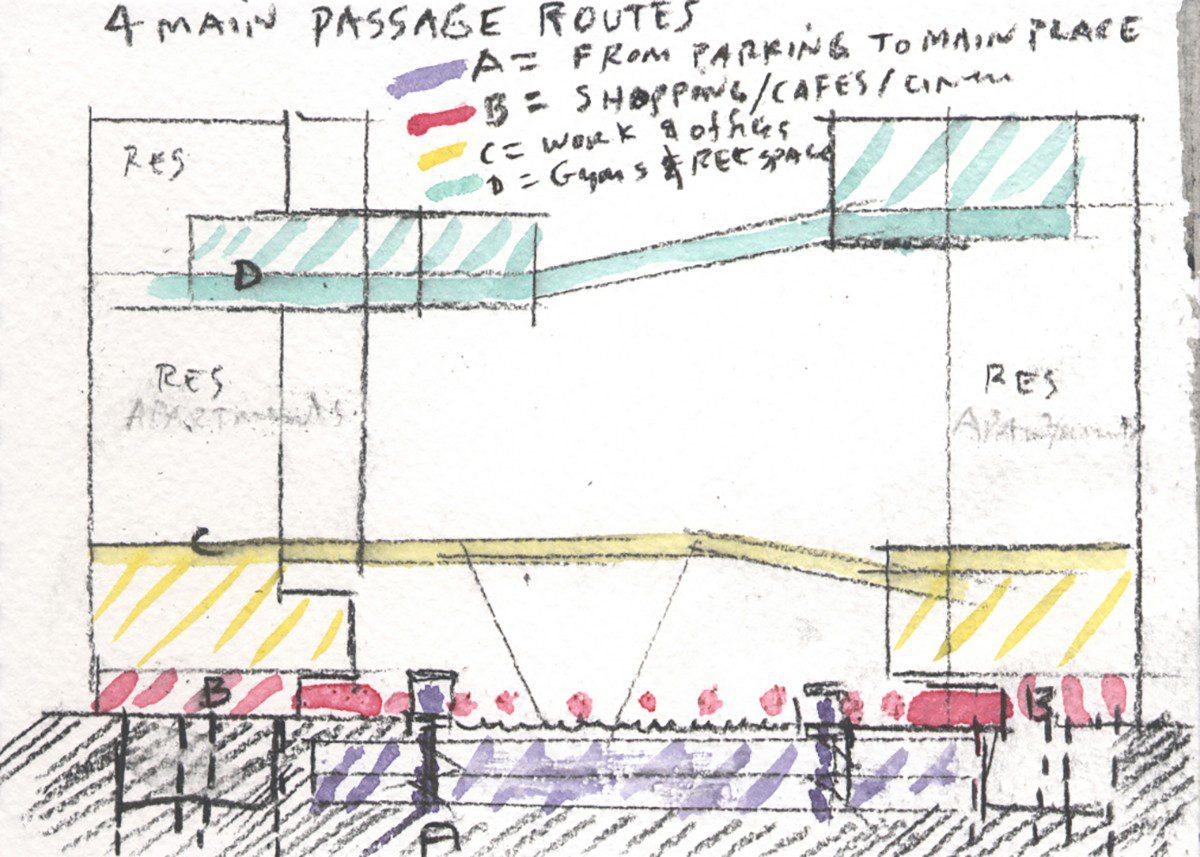 4 MAIN PASSAGE ROUTES
A = FROM PARKING TO MAIN PLACE
B = SHOPPING/CAFES/CINEMA
C = WORK & offices
D = Gyms & REC SPACE
RES
D
RES
APARTMENTS
RES
APARTMENTS
C
B
B
A